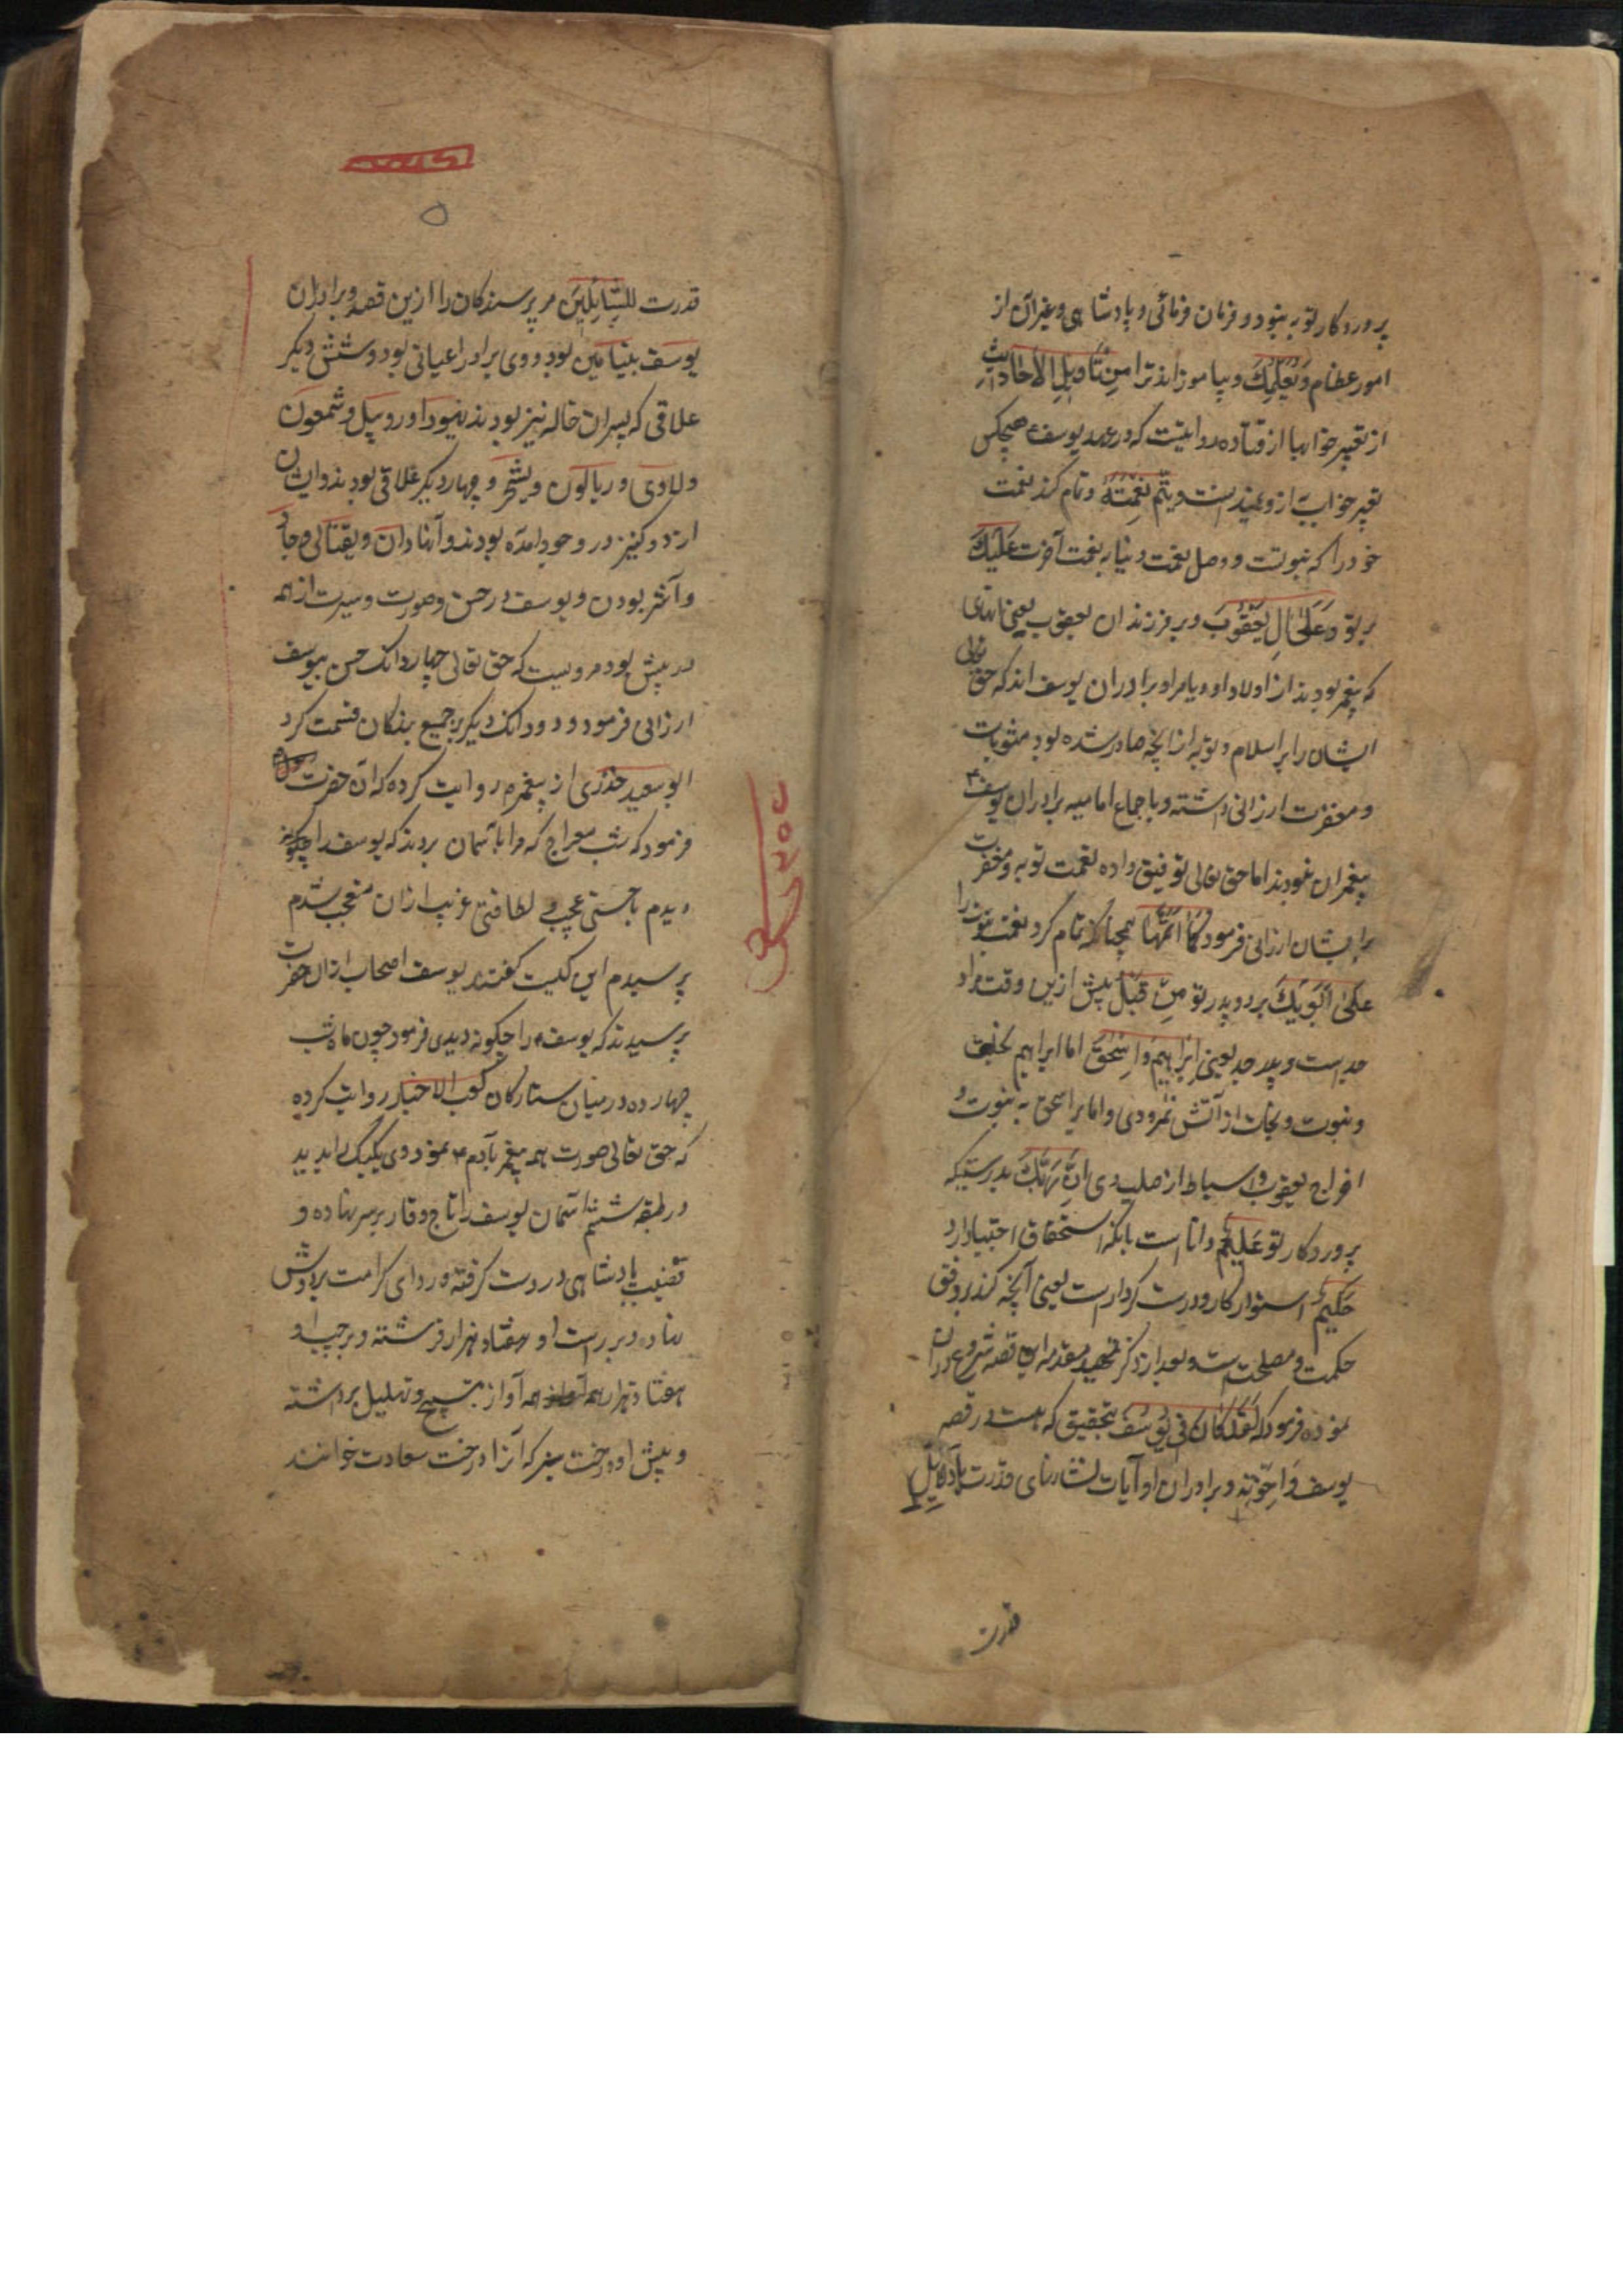 پروردکار تو به نبوّد و فرمان فرمائی و پادشاهی و غیر آن از
امور عظام وَیُعَلِّمُكَ و بیاموزاند ترا مِن تَأویلِ الاَحادیثِ
از تعبیر خوابها از قتاده روایتست که در عهد یوسف ع هیچکس
تعبیر خواب به ازو نمیدانست و یُتِمُّ نِعمَتَهُ و تمام کند نعمت
خود را که نبوتست و وصل نعمت دنیا به نعمت آخرت عَلَیكَ
بر تو وَعَلیٰ اٰلِ یَعقُوبَ و بر فرزندان یعقوب یعنی آنهای
که پیغمبر بودند از اولاد او و یا مراد برادران یوسف اند که حق تعالی
ایشان را بر اسلام و توبه از آنچه صادر شده بود مثوبات
و مغفرت ارزانی داشته و باجماع امامیه برادران یوسف ع
پیغمبران نبودند اما حق تعالی توفیق داده نعمت توبه و مغفرت
بر ایشان ارزانی فرمود کَما اَتَمَّها همچنانکه تمام کرد نعمت نبوت را
عَلیٰ اَبَوَیكَ بر دو پدر تو مِن قَبلُ پیش ازین وقت مراد
جد است و پدر جد یعنی اِبرٰاهیمَ وَاِسحٰقَ اما ابراهیم بخلت
و نبوت و نجات از آتش نمرودی و اما بر اسحق به نبوت و
اخراج یعقوب و اسباط از صلب وی اِنَّ رَبَّكَ بدرستیکه
پروردکار تو عَلیمٌ دانا است بآنکه استحقاق اجتبا دارد
حَکیمٌ استوار کار و درست کردار است یعنی آنچه کند بر وفق
حکمت و مصلحت است و بعد از ذکر تمهید مقدمه این قصه شروع در آن
نموده فرمود که لَقَد کانَ فی یُوسُفَ بتحقیق که هست در قصه
یوسف وَاِخوَتِهِ و برادران او آیات نشانهای قدرت
قدرت
۵
قدرت لِلسّائِلینَ مر پرسندکان را ازین قصه و برادران
یوسف بنیامین بود و وی برادر اعیانی بود و شش دیکر
علاتی که پسران خاله نیز بودند یهودا و روبیل و شمعون
و لاوی و ریالون و یشجر و چهار دیکر علاتی بودند و ایشان
از دو کنیز در وجود آمده بودند و آنها دان و یقتالی و جاد
و آشر بودن و یوسف در حسن و صورت و سیرت از همه
در پیش بود مرویست که حق تعالی چهار دانک حسن بیوسف
ارزانی فرمود و دو دانک دیکر بر جمیع بندکان قسمت کرد
ابو سعید خدری از پیغمبر م روایت کرده که آن حضرت
فرمود که شب معراج که مرا بآسمان بردند که یوسف را
دیدم با حسنی عجب و لطافتی غریب از آن متعجب شدم
پرسیدم این کیست کفتند یوسف اصحاب از آن حضرت
پرسیدند که یوسف ع را چکونه دیدی فرمود چون ماه شب
چهارده در میان ستارکان کعب الاخبار روایت کرده
که حق تعالی صورت همه پیغمبر بآدم ع نمود و وی یکیک را بدید
در طبقه ششم آسمان یوسف را تاج وقار بر سر نهاده و
قضیب پادشاهی در دست کرفته و ردای کرامت بر دوش
نهاده و بر راست او هفتاد هزار فرشته و بر چپ او
هفتاد هزار همه آواز تسبیح و تهلیل برداشته
و پیش او درخت سبز که آنرا درخت سعادت خوانند